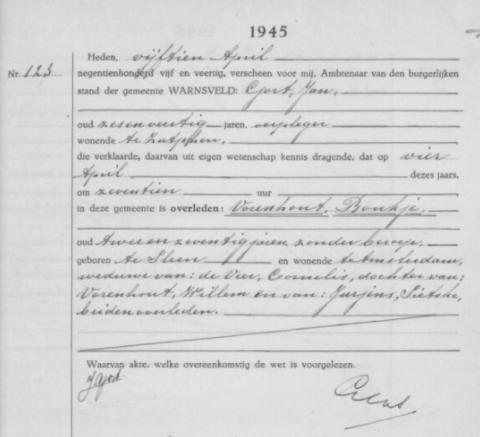 1945
Nr. 123
Heden, vijftien April
negentienhonderd vijf en veertig, verscheen voor mij, Ambtenaar van den burgerlijken
stand der gemeente WARNSVELD: Gort, Jan,
oud zesenveertig jaren, verpleger
wonende te Zutphen
die verklaarde, daarvan uit eigen wetenschap kennis dragende, dat op vier
April dezes jaars,
om zeventien uur
in deze gemeente is overleden: Vorenhout, Boukje,
oud twee en zeventig jaren, zonder beroep,
geboren te Sleen en wonende te Amsterdam,
weduwe van: de Veer, Cornelis, dochter van:
Vorenhout, Willem en van: Jurjens, Sietske,
beiden overleden.
Waarvan akte, welke overeenkomstig de wet is voorgelezen.
JGort